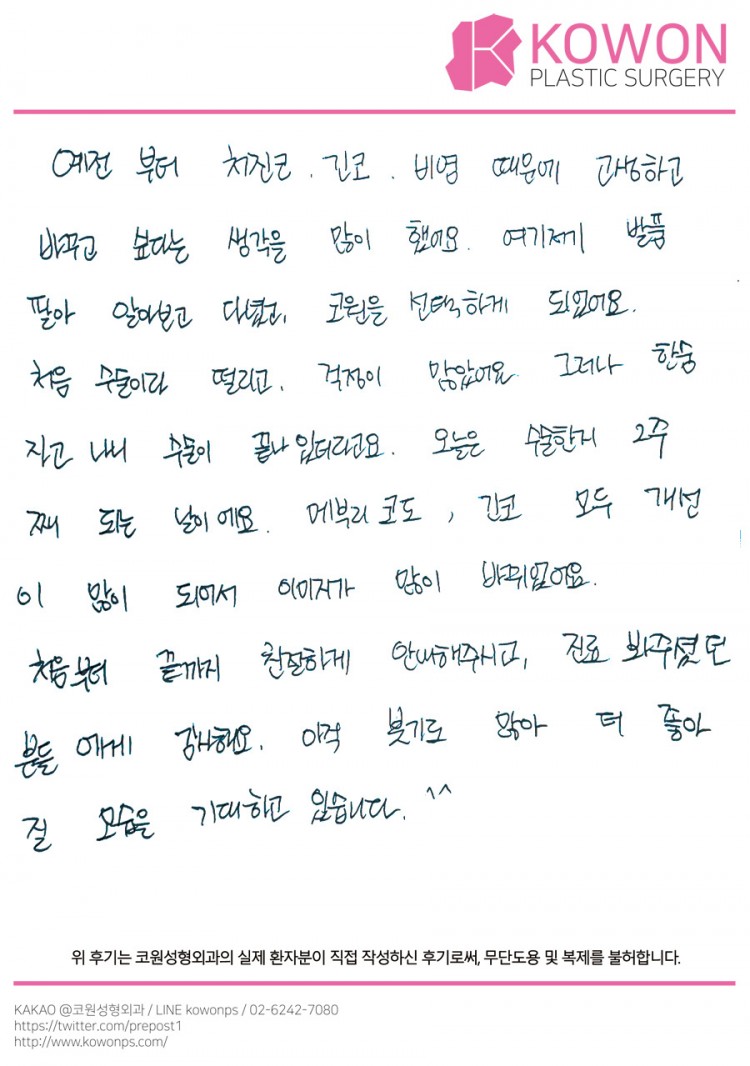 KOWON
PLASTIC SURGERY
예전 부터 처진코. 긴코. 비염 때문에 고생하고
바꾸고 싶다는 생각을 많이 했어요. 여기저기 발품
팔아 알아보고 다녔고, 코원을 선택하게 되었어요.
처음 수술이라 떨리고, 걱정이 많았어요 그러나 한숨
자고 나니 수술이 끝나 있더라고요. 오늘은 수술한지 2주
째 되는 날이에요. 메부리코도, 긴코 모두 개선
이 많이 되어서 이미지가 많이 바뀌었어요.
처음부터 끝까지 친절하게 안내해주시고, 진료 봐주셨던
분들 에게 감사해요. 아직 붓기도 많아 더 좋아
질 모습을 기대하고 있습니다. ^^
위 후기는 코원성형외과의 실제 환자분이 직접 작성하신 후기로써, 무단도용 및 복제를 불허합니다.
KAKAO @코원성형외과 / LINE kowonps / 02-6242-7080
https://twitter.com/prepost1
http://www.kowonps.com/